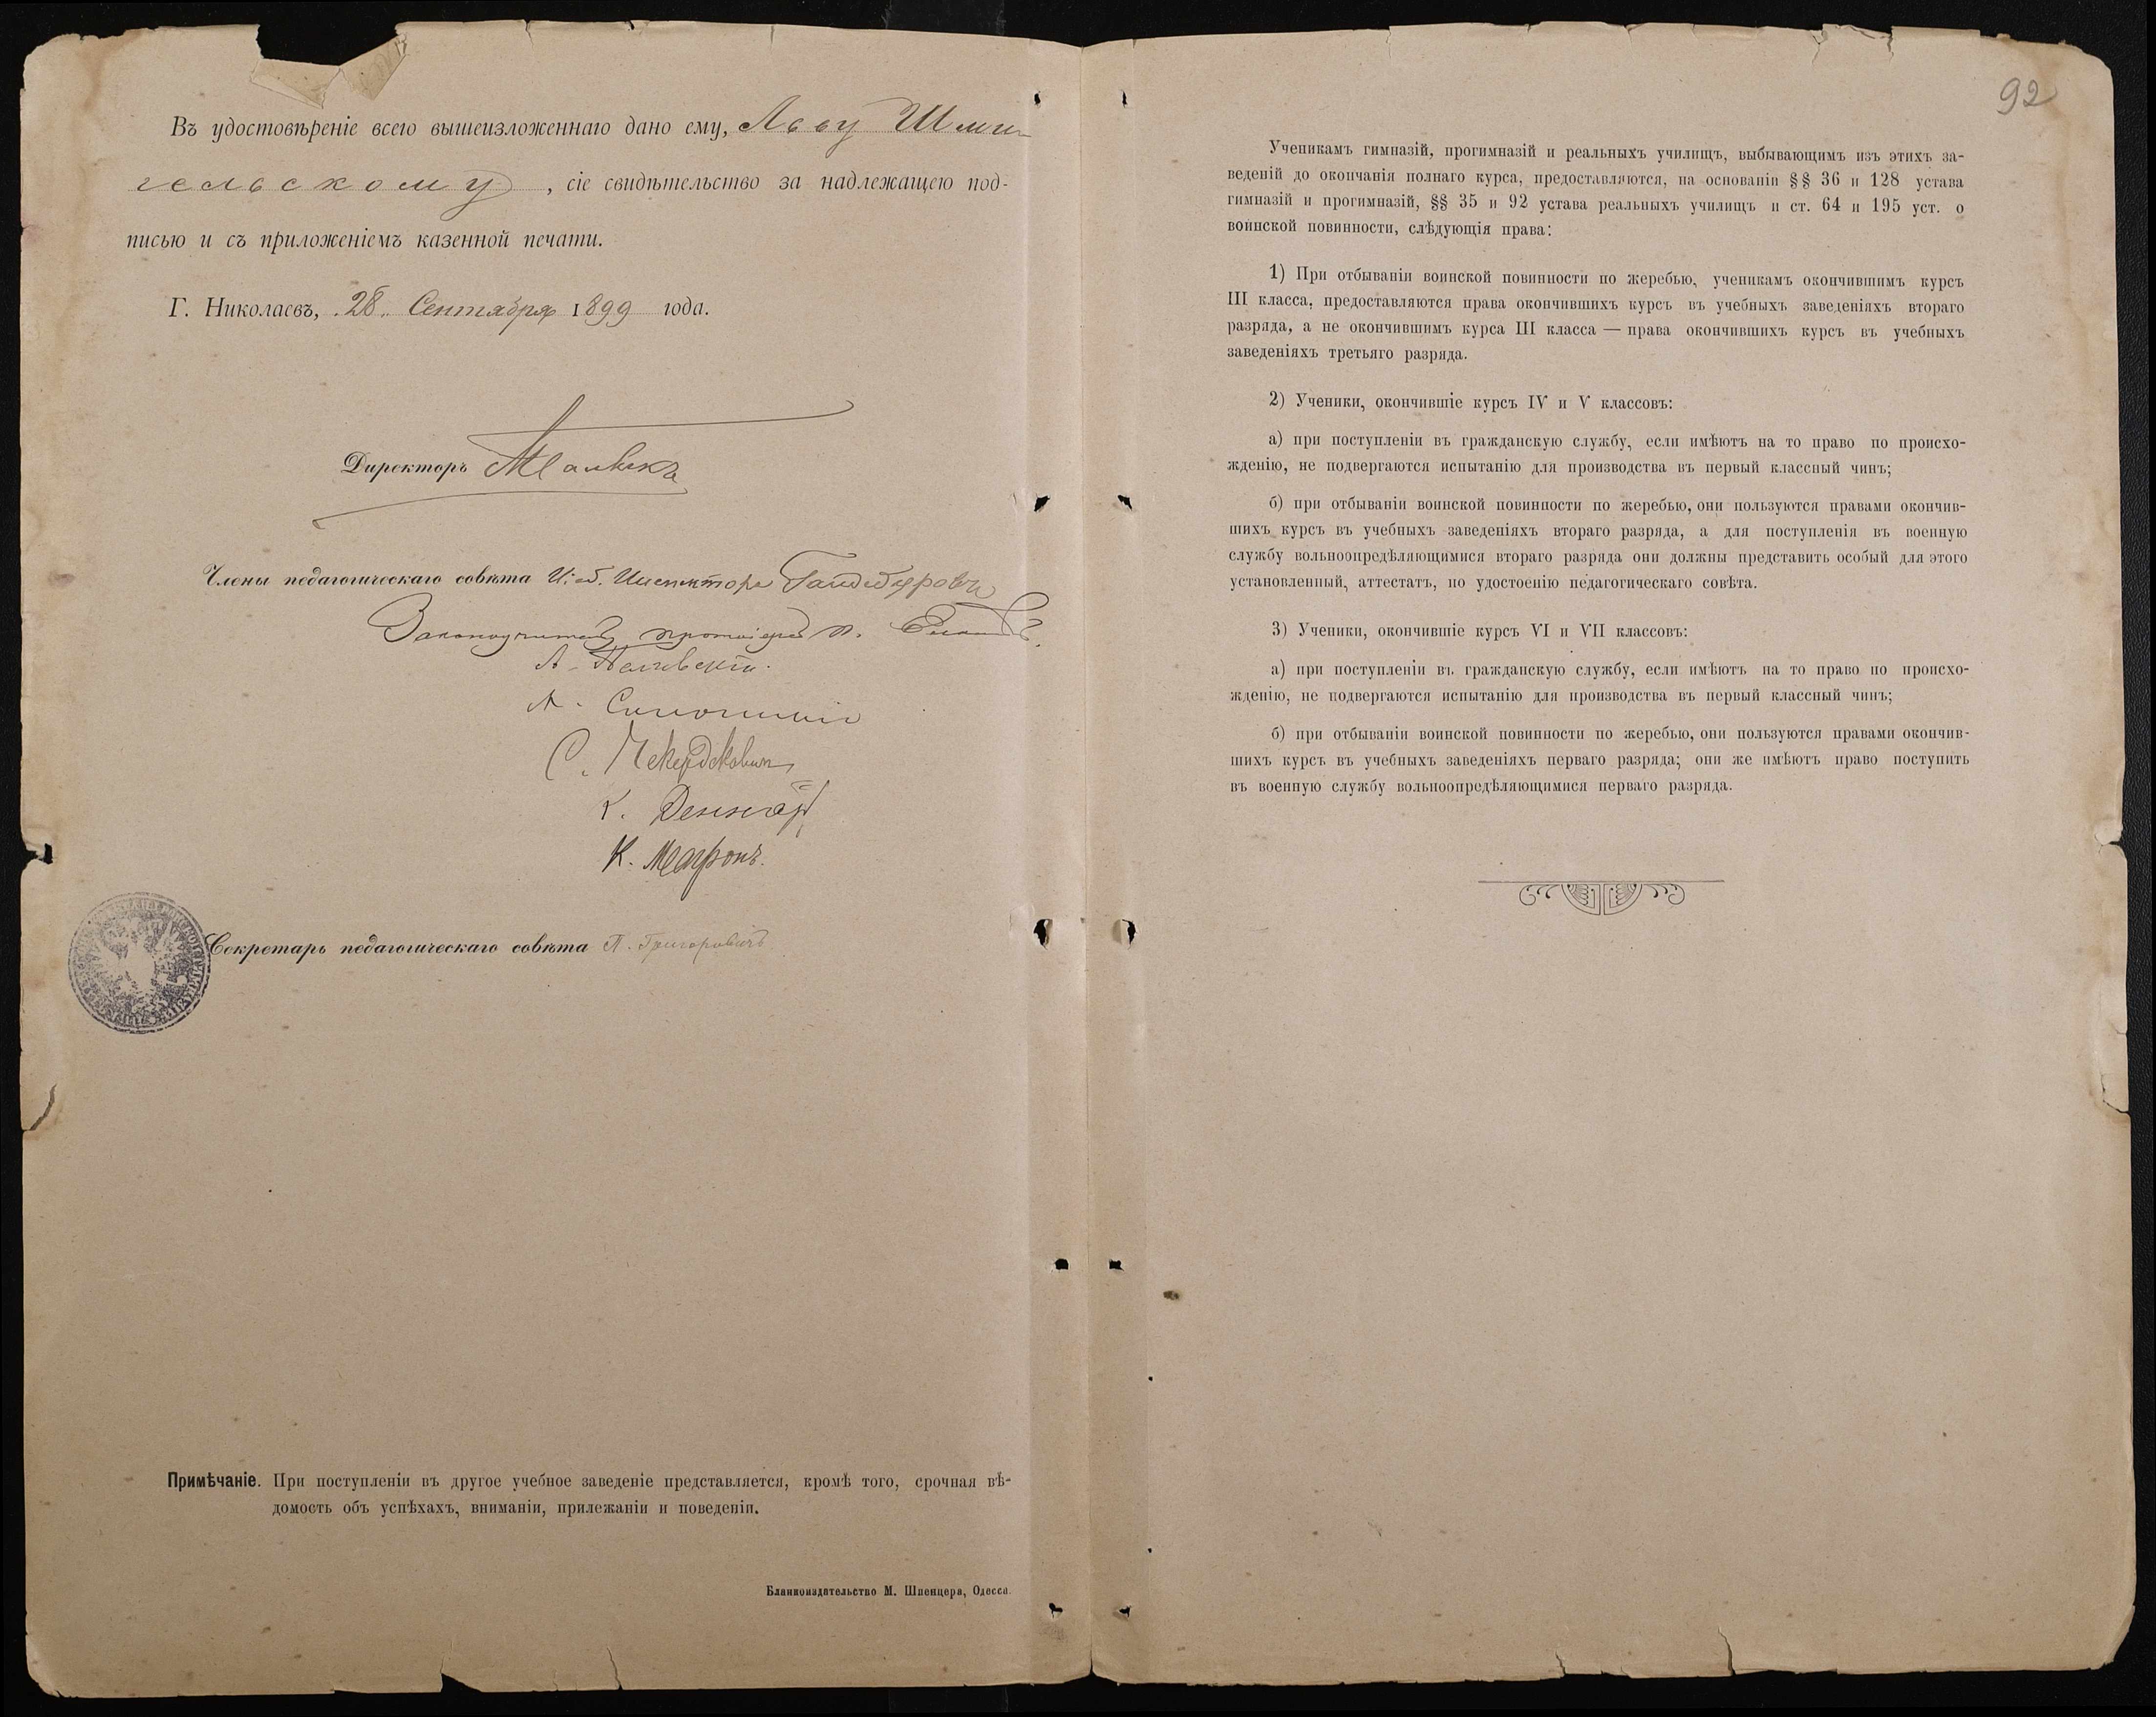 Въ удостовѣреніе всего вышеизложеннаго дано ему, Льву Шми-
гельскому, сіе свидѣтельство за надлежащею под-
писью и съ приложеніемъ казенной печати.
Г. Николаевъ, 28 Сентября 1899 года.
Директоръ
Члены педагогическаго совѣта И. об. Инспектора Гайдебуровъ
Законоучитель протоіерей
А.
А.
С.
К.
К.
Секретарь педагогическаго совѣта П. Григоровичъ
Примѣчаніе. При поступленіи въ другое учебное заведеніе представляется, кромѣ того, срочная вѣ-
домость объ успѣхахъ, вниманіи, прилежаніи и поведеніи.
Бланкоиздательство М. Шпенцера, Одесса.
92
Ученикамъ гимназій, прогимназій и реальныхъ училищъ, выбывающимъ изъ этихъ за-
веденій до окончанія полнаго курса, предоставляются, на основаніи §§ 36 и 128 устава
гимназій и прогимназій, §§ 35 и 92 устава реальныхъ училищъ и ст. 64 и 195 уст. о
воинской повинности, слѣдующія права:
1) При отбываніи воинской повинности по жеребью, ученикамъ окончившимъ курсъ
III класса, предоставляются права окончившихъ курсъ въ учебныхъ заведеніяхъ втораго
разряда, а не окончившимъ курса III класса — права окончившихъ курсъ въ учебныхъ
заведеніяхъ третьяго разряда.
2) Ученики, окончившіе курсъ IV и V классовъ:
а) при поступленіи въ гражданскую службу, если имѣютъ на то право по происхо-
жденію, не подвергаются испытанію для производства въ первый классный чинъ;
б) при отбываніи воинской повинности по жеребью, они пользуются правами окончив-
шихъ курсъ въ учебныхъ заведеніяхъ втораго разряда, а для поступленія въ военную
службу вольноопредѣляющимися втораго разряда они должны представить особый для этого
установленный, аттестатъ, по удостоенію педагогическаго совѣта.
3) Ученики, окончившіе курсъ VI и VII классовъ:
а) при поступленіи въ гражданскую службу, если имѣютъ на то право по происхо-
жденію, не подвергаются испытанію для производства въ первый классный чинъ;
б) при отбываніи воинской повинности по жеребью, они пользуются правами окончив-
шихъ курсъ въ учебныхъ заведеніяхъ перваго разряда; они же имѣютъ право поступить
въ военную службу вольноопредѣляющимися перваго разряда.